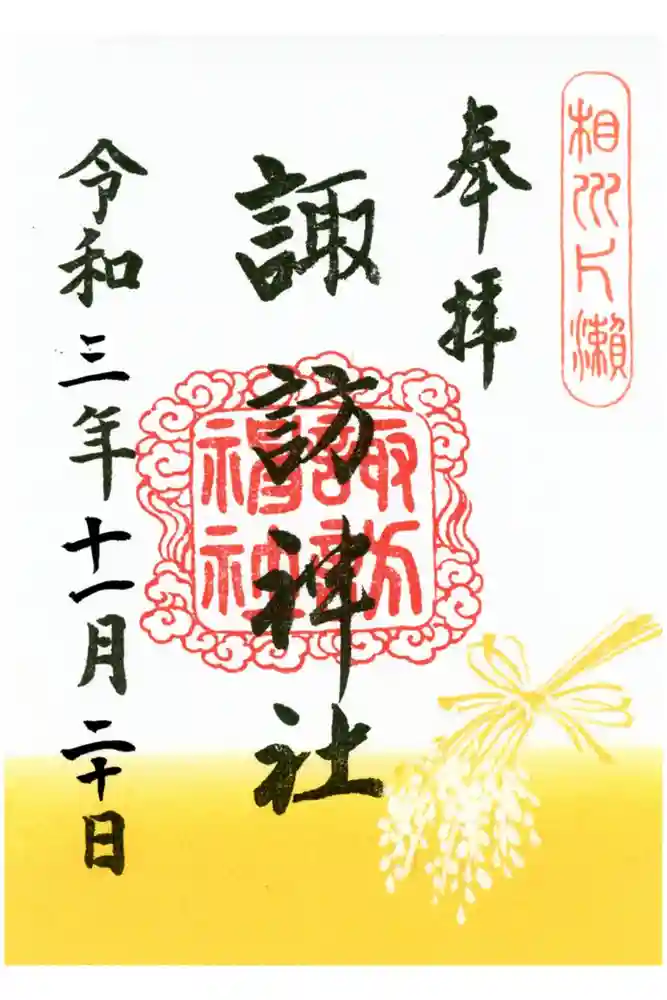 相州片瀬
奉拝
諏訪神社
諏訪神社
令和三年十一月二十日